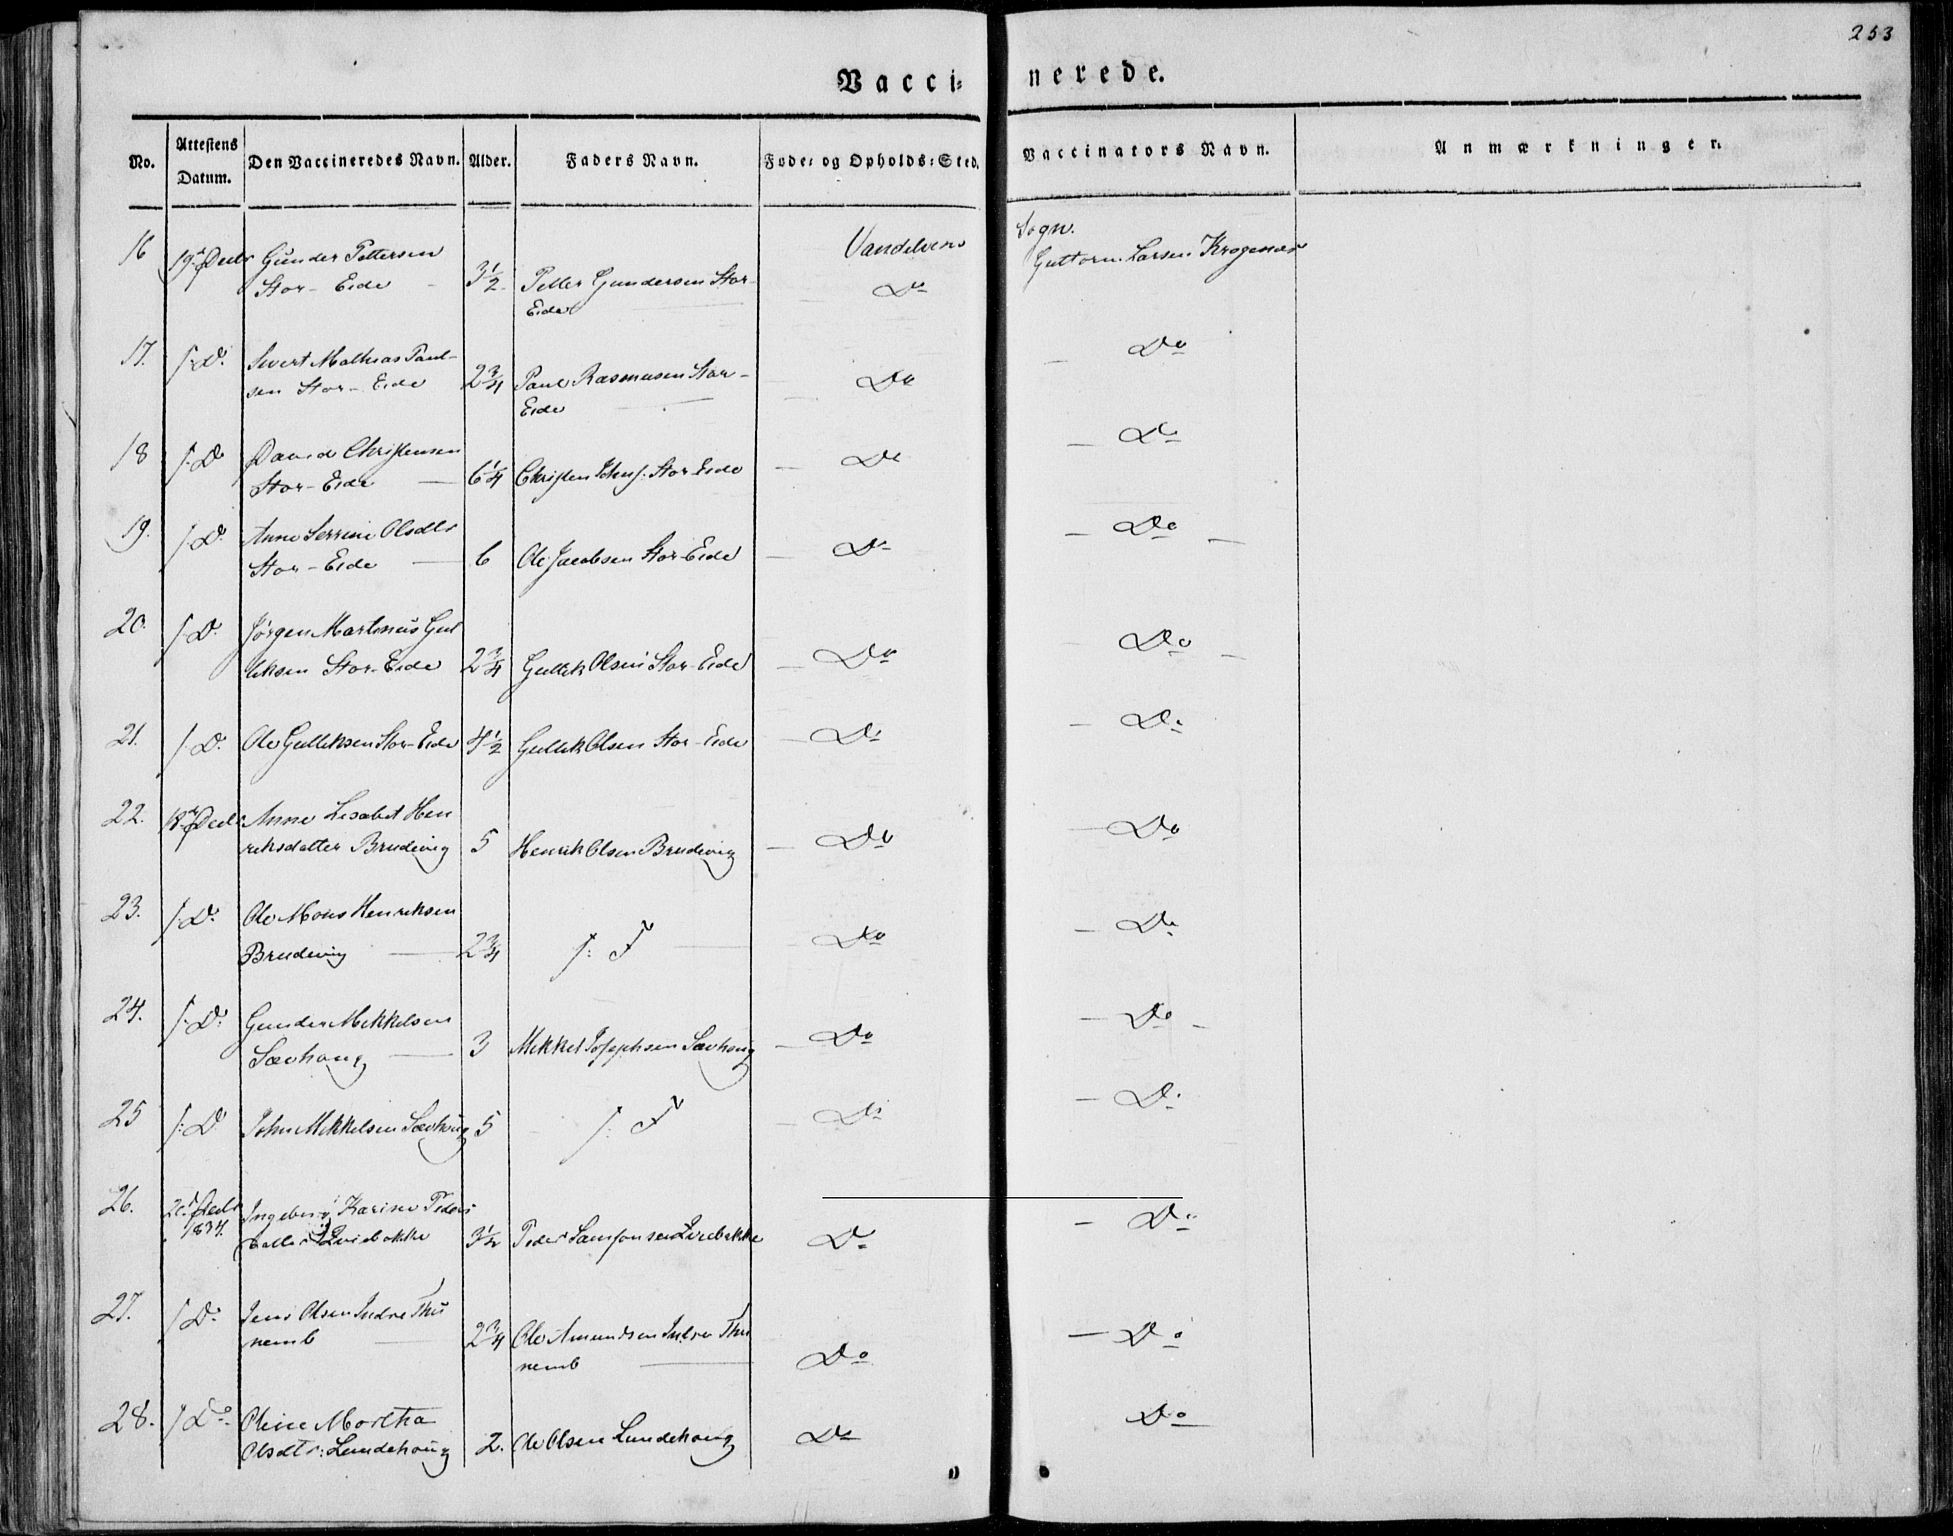 253
Vacci=
nerede.
No.
Attestens Datum.
Den Vaccineredes Navn.
Alder.
Faders Navn.
Føde= og Opholds=Sted.
Vaccinators Navn.
Anmærkninger.
Vandelvens Sogn.
16 19de Decbr Gunder Pettersen
Stor-Eide - 3½ Petter Gundersen Stor-
Eide - Do Guttorm Larsen Krogenæs
17. /: Do. Sivert Mathias Paul-
sen Stor-Eide 2¾ Paul Rasmusen Stor-
Eide - Do - Do
18 /: Do David Christensen
Stor-Eide - 6¼ Christen Johns: Stor-Eide - Do - Do
19. /: Do. Anne Serrine Olsdtr
Stor-Eide - 6 Ole Jacobsen Stor-Eide - Do - Do -
20. /: Do. Jörgen Martinus Gul
liksen Stor-Eide 2¾ Gullik Olsen Stor-Eide - Do - Do -
21. /: Do. Ole Gulliksen Stor-Eide 4½ Gullik Olsen Stor-Eide - Do - Do
22. 18de Decbr Anne Lisabet Hen
riksdatter Brudevig 5 Henrik Olsen Brudevig - Do - Do
23. /: Do. Ole Mons Henriksen
Brudevig - 2¾ /: F - Do - Do
24. /: Do. Gunder Mikkelsen
Sævhoug - 3 Mikkel Josephsen Sævhoug - Do - Do -
25 /: Do John Mikkelsen Sævhoug 5 - /: F - Do - Do
26. 20de Decbr
1834. Ingeborg Karine Peders
datter 3½ Peder Samsonsen Do - Do
27. /: Do. Jens Olsen Indre Thu
nemb - 2¾ Ole Amundsen Indre Thu
nemb - Do - Do
28. /: Do. Oline Martha
Olsdtr: Lundehoug 2. Ole Olsen Lundehoug Do Do